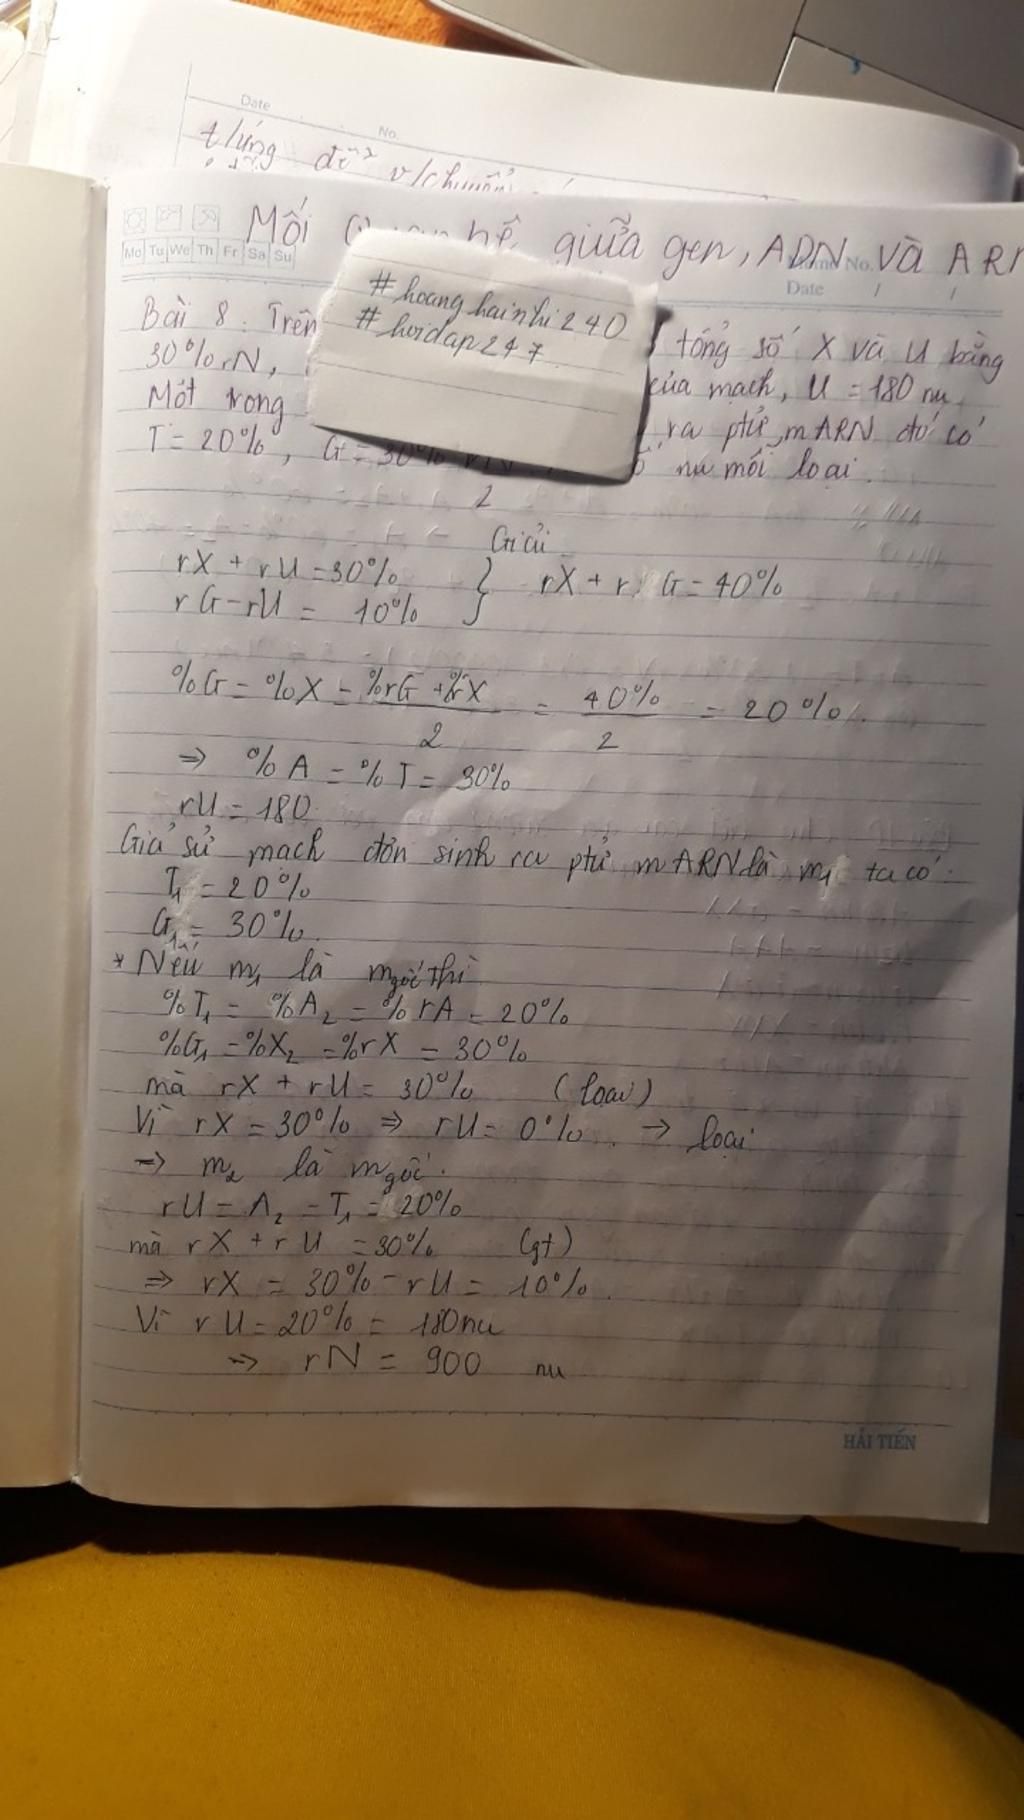 Date
No.
từng đ v/chuyển
Mo Tu We Th Fr Sa Su
Mối hệ giữa gen, ADN và AR
No.
Date / /
#hoanghainhi240
#hoidap247
Bài 8. Trên tổng số X và U bằng
30% rN, của mạch, U = 180 nu
Một trong ra ptử mARN đó có
T = 20%, G = 30% nu mỗi loại.
2
Giải
rX + rU = 30% } rX + r G = 40%
rG - rU = 10%
%G = %X = %rG + %rX / 2 = 40% / 2 = 20%.
⇒ %A = %T = 30%
rU = 180
Giả sử mạch đơn sinh ra ptử mARN là m₁ ta có
T₁ = 20%
G₁ = 30%.
* Nếu m₁ là mgốc thì
%T₁ = %A₂ = %rA = 20%
%G₁ = %X₂ = %rX = 30%
mà rX + rU = 30% (loại)
Vì rX = 30% ⇒ rU = 0% → loại
⇒ m₂ là mgốc.
rU = A₂ = T₁ = 20%
mà rX + rU = 30% (gt)
⇒ rX = 30% - rU = 10%.
Vì rU = 20% = 180nu
⇒ rN = 900 nu
HẢI TIẾN